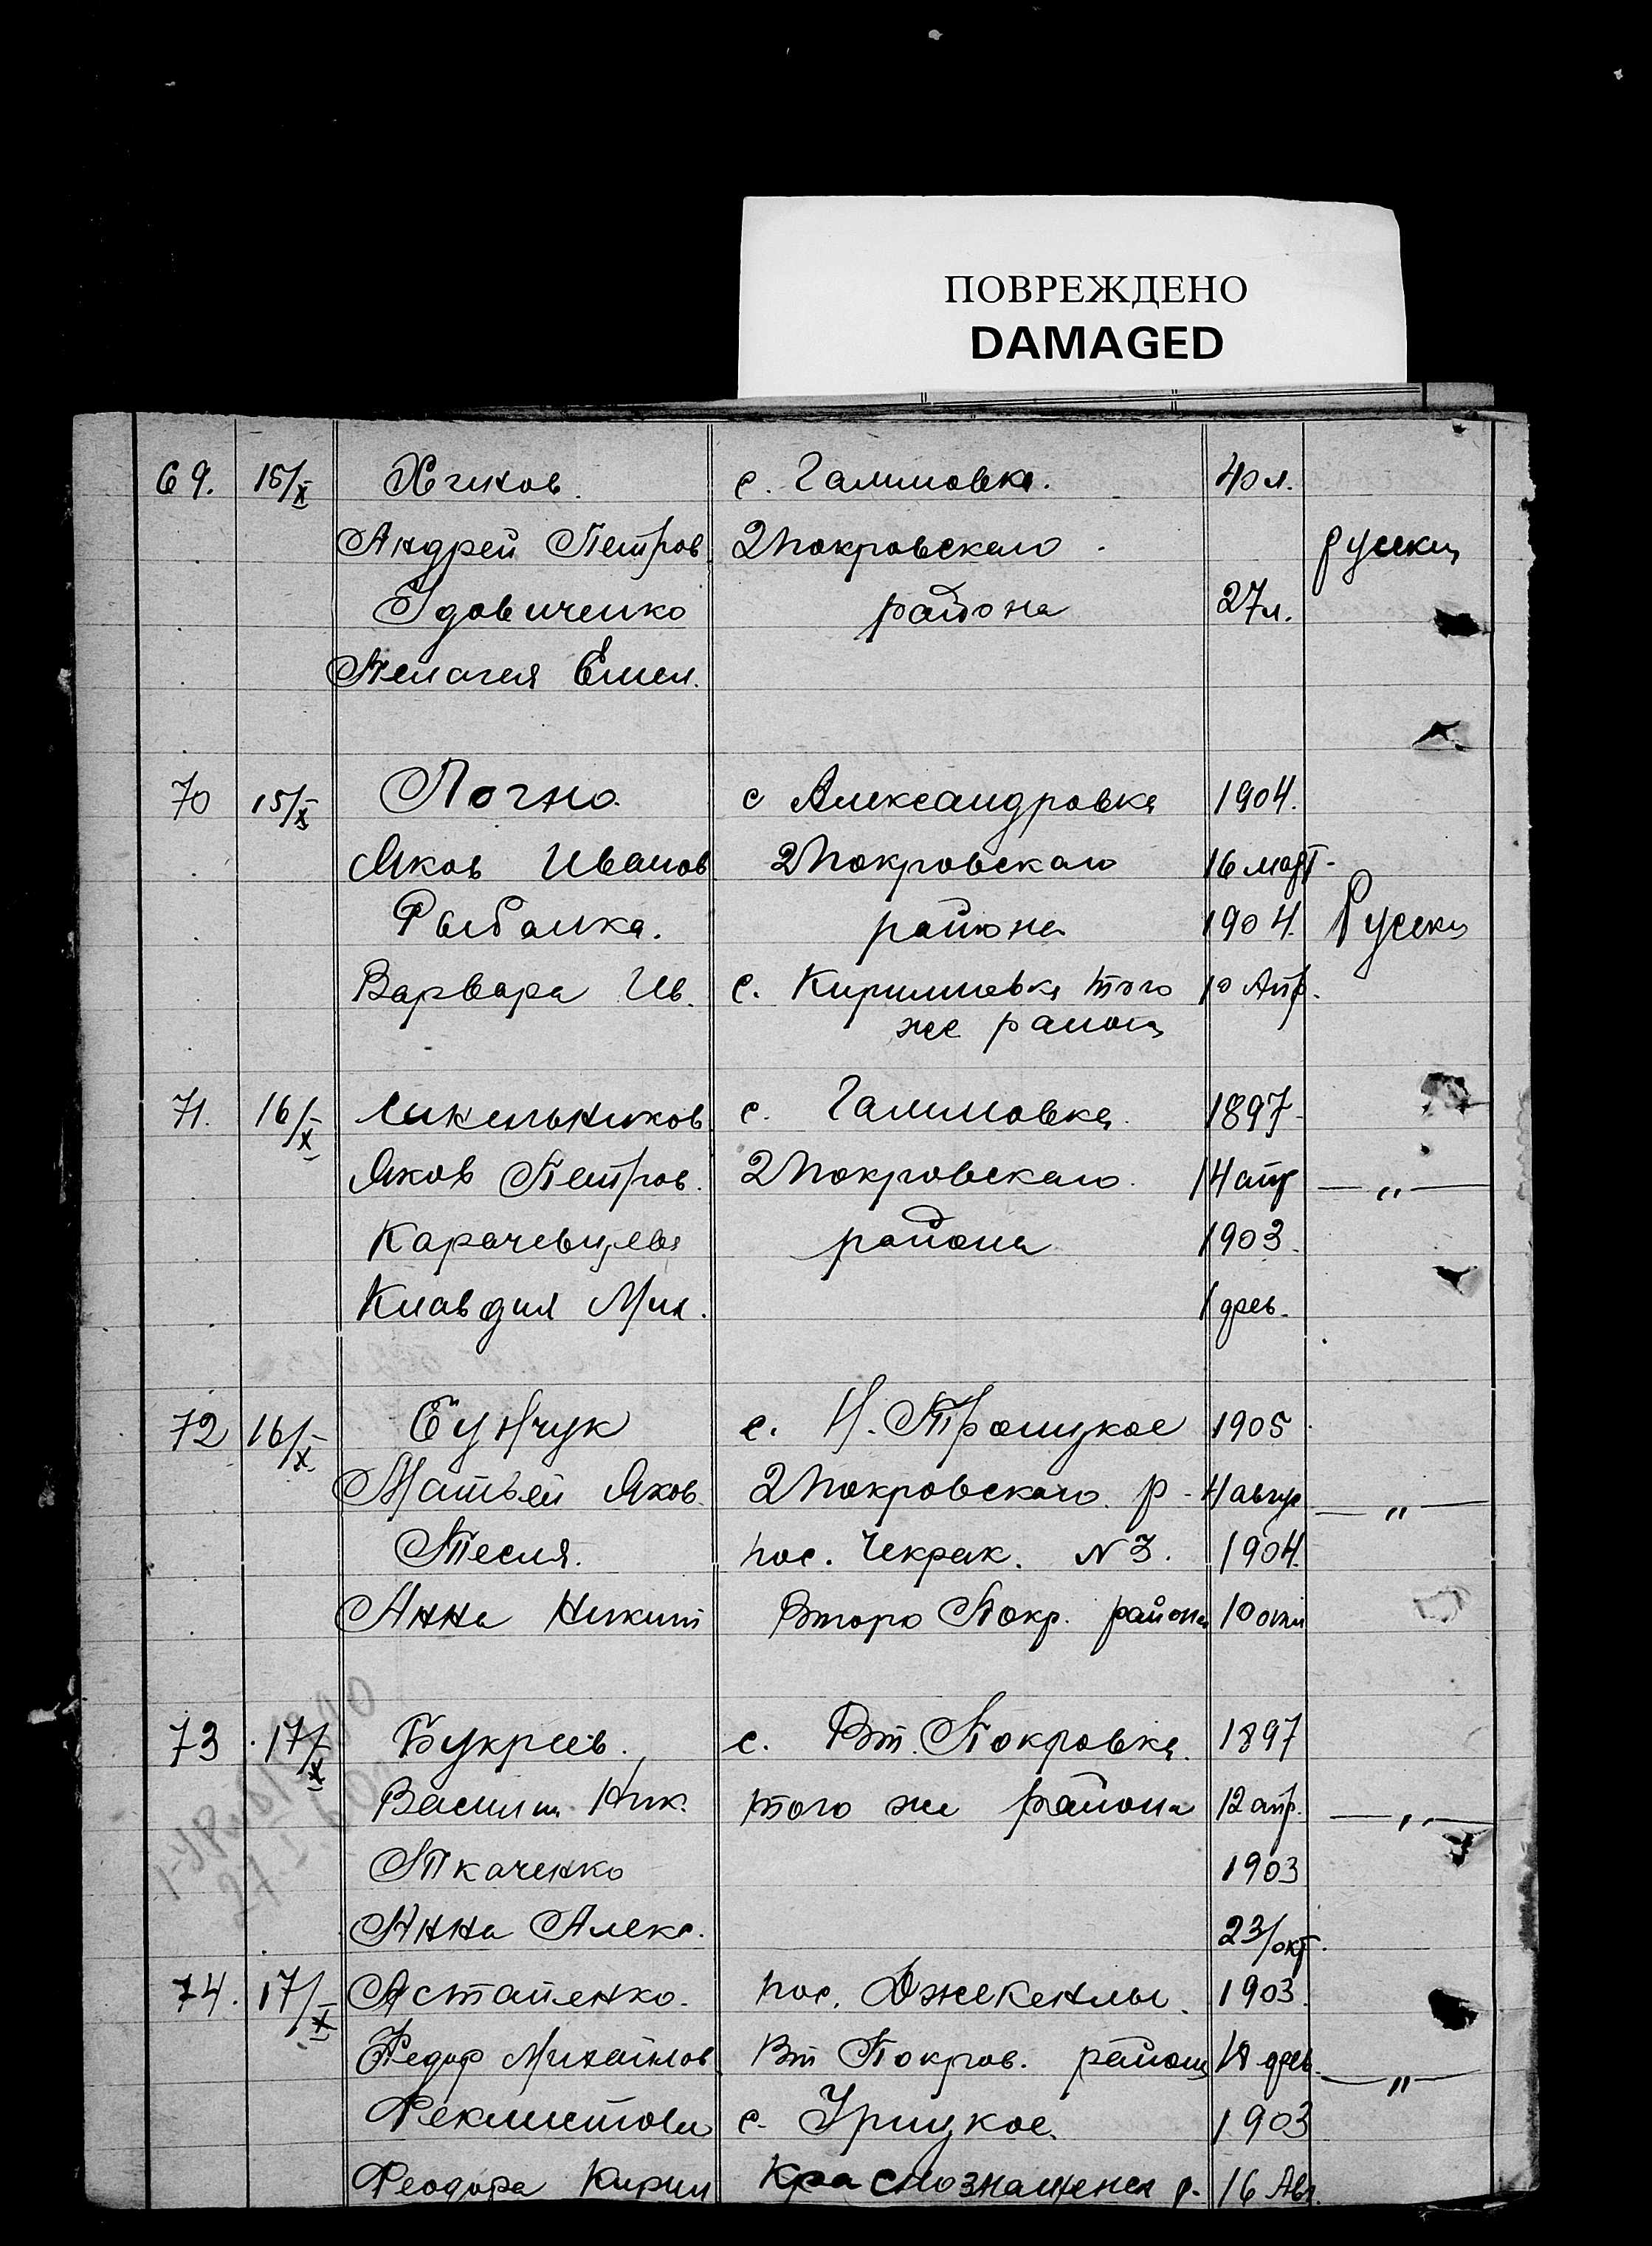 ПОВРЕЖДЕНО
DAMAGED
69. 15/X Хечков. с. Галимовка. 40 л.
Андрей Петров. 2Покровского русски
Удовиченко района 27 л.
Пелагея Емел.
70 15/X Логно с Александровка 1904.
Яков Иванов. 2Покровского 16 март.
Рыбалка. района 1904. Русски
Варвара Ив. с. Кирилловка того 10 Апр.
же района
71. 16/X с. Галимовка 1897
Яков Петров. 2Покровского 14 апр — „ —
Карачевцева района 1903.
Клавдия Мих. 1 фев.
72 16/X Бунчук с. Н. Троицкое 1905
Матвей Яков. 2Покровского р - 4 авгус — „ —
Тесля. пос. Чекрак. N 3. 1904.
Анна Никит Второ Покр. района 10
73 17/X Букреев. с. Вт. Покровка. 1897
Василий Ник. того же района 12 апр. — „ —
Ткаченко 1903
Анна Алекс. 23/окт.
74. 17/X Астапенко. пос. Джекенлы. 1903.
Федор Михайлов Вт Покров. района фев. — „ —
Феклистова с. Урицкое. 1903
Феодора Кирил Краснознаменск р. 16 Авг.